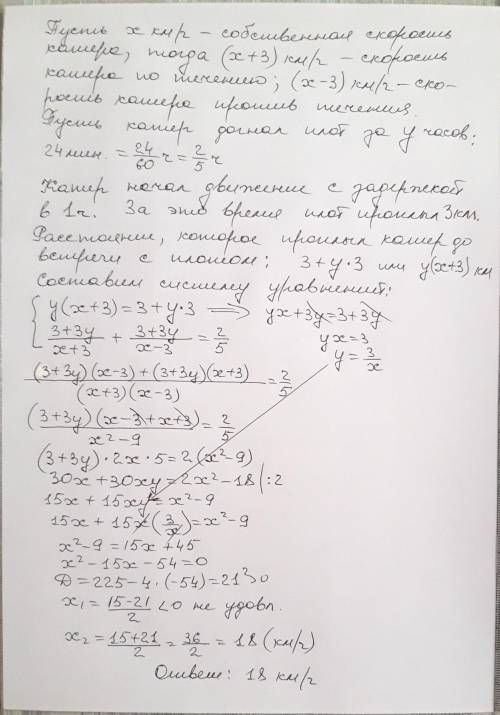 Пусть x км/ч – собственная скорость
катера, тогда (x+3) км/ч – скорость
катера по течению; (x-3) км/ч – ско-
рость катера против течения.
Пусть катер догнал плот за y часов;
24 мин. = 24/60 ч = 2/5 ч
Катер начал движение с задержкой
в 1 ч. За это время плот проплыл 3 км.
Расстояние, которое проплыл катер до
встречи с плотом: 3+y·3 или y(x+3) км
Составим систему уравнений:
{ y(x+3) = 3+y·3 ⟹ yx+3y=3+3y
(3+3y)/(x+3) + (3+3y)/(x-3) = 2/5 yx=3
y = 3/x
((3+3y)(x-3)+(3+3y)(x+3))/((x+3)(x-3)) = 2/5
((3+3y)(x-3+x+3))/(x²-9) = 2/5
(3+3y)·2x·5=2(x²-9)
30x+30xy=2x²-18 |:2
15x+15xy=x²-9
15x+15x(3/x)=x²-9
x²-9=15x+45
x²-15x-54=0
D=225-4·(-54)=21²>0
x₁=(15-21)/2 <0 не удовл.
x₂=(15+21)/2=36/2=18 (км/ч)
Ответ: 18 км/ч